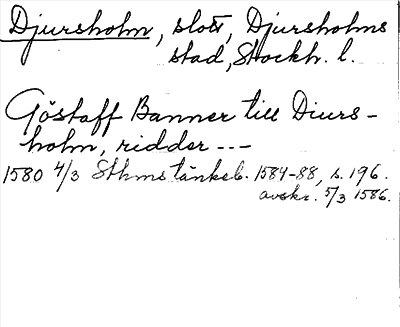 Djursholm, slott, Djursholms
stad, Stockh. l.
Göstaff Banner till Diurs-
holm, ridder ---
1580 4/3 Sthms tänkeb. 1584-88, s. 196.
avskr. 5/3 1586.